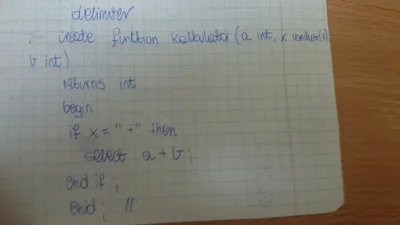 delimiter
create funktion kalkulator (a int, x varchar(1)
b int)
returns int
begin
if x = "+" then
select a + b ;
end if ;
end ; //